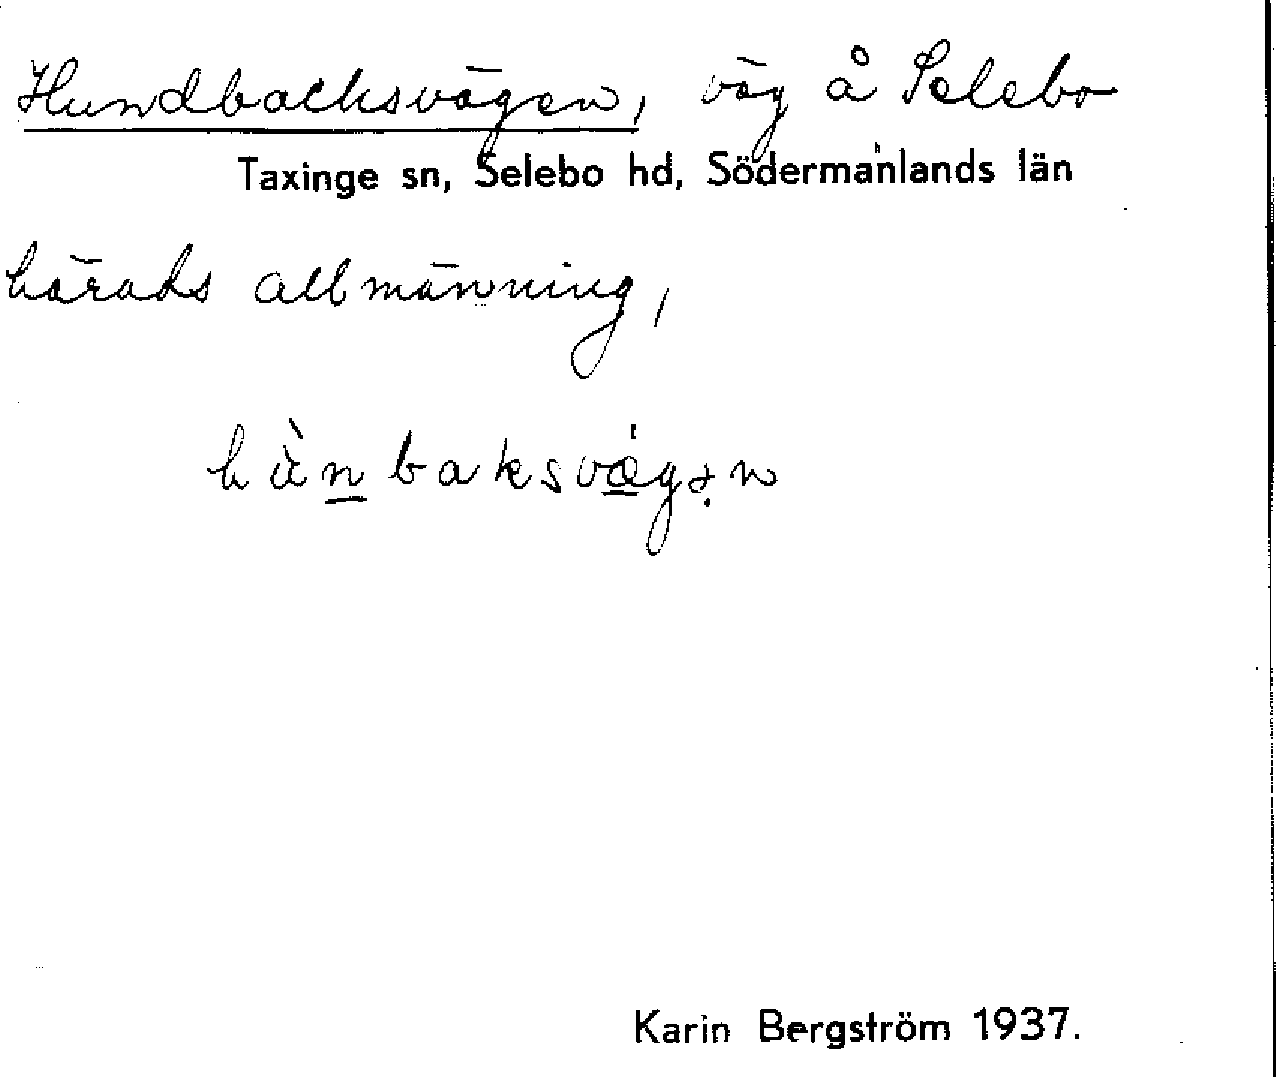 Hundbacksvägen, väg å Selebo
Taxinge sn, Selebo hd, Södermanlands län
härads allmänning,
hùnbaksvǽgən
Karin Bergström 1937.